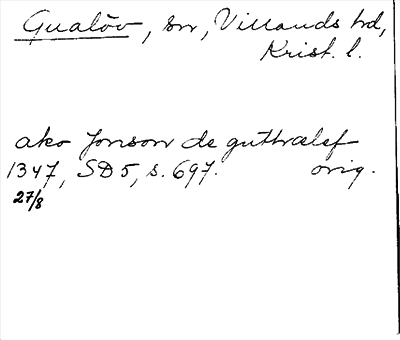 Gualöv, sn, Villands hd,
Krist. l.
ako Jonson de guthrælef
1347, SD 5, s. 697. orig.
27/8